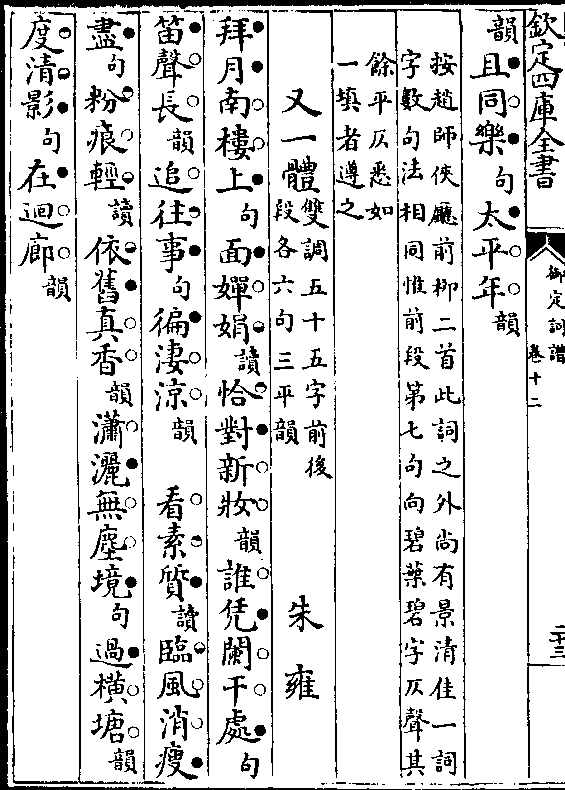 欽定四庫全書
御定詞譜
卷十二
二十三
韻且同樂句太平年韻
按趙師俠廳前柳二首此詞之外尚有景清佳一詞
字數句法相同惟前段第七句向碧葉碧字仄聲其
餘平仄悉如
一填者遵之
又一體雙調五十五字前後
段各六句三平韻 朱雍
拜月南樓上句面嬋娟讀恰對新妝韻誰凭闌干處句
笛聲長韻追往事句徧淒涼韻 看素質讀臨風消瘦
盡句粉痕輕讀依舊真香韻瀟灑無塵境句過橫塘韻
度清影句在迴廊韻